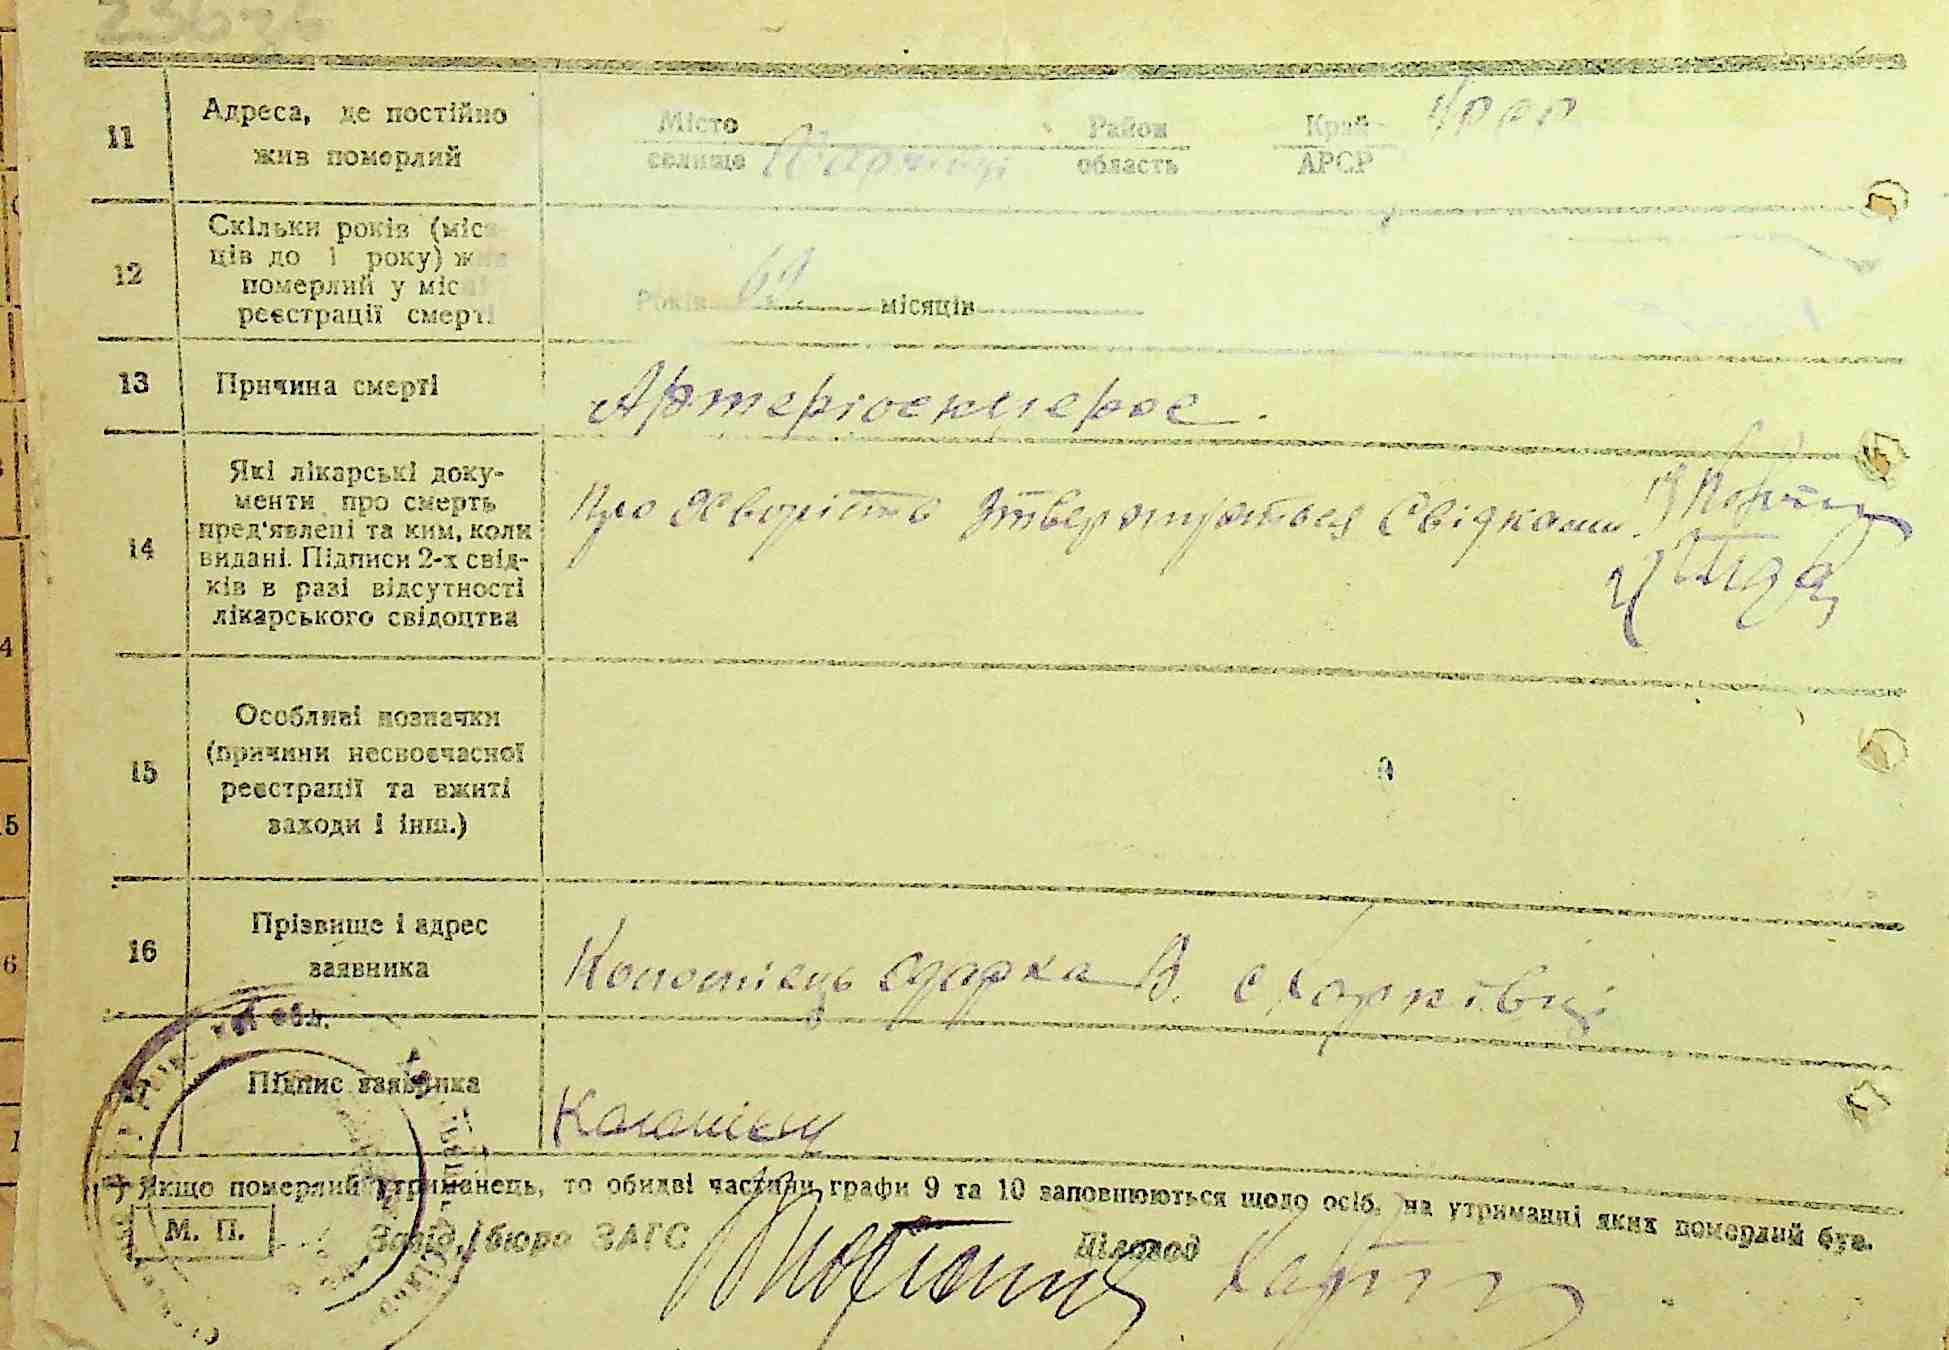 11
Адреса, де постійно
жив померлий
Місто
селище
Район
область
Край
АРСР
УРСР
12
Скільки років (міся-
ців до 1 року) жив
померлий у місці
реєстрації смерті
Років 69 місяців
13
Причина смерті
Артеріосклерос.
14
Які лікарські доку-
менти про смерть
пред'явлені та ким, коли
видані. Підписи 2-х свід-
ків в разі відсутності
лікарського свідоцтва
Про хворість Свідками.
15
Особливі позначки
(причини несвоєчасної
реєстрації та вжиті
заходи і інш.)
16
Прізвище і адрес
заявника
Коломієць Одарка В. с
17
Підпис заявника
Коломієц
1) Якщо померлий утриманець, то обидві частини графи 9 та 10 заповнюються щодо осіб, на утриманні яких померлий був.
М. П.
Завід. бюро ЗАГС
Діловод